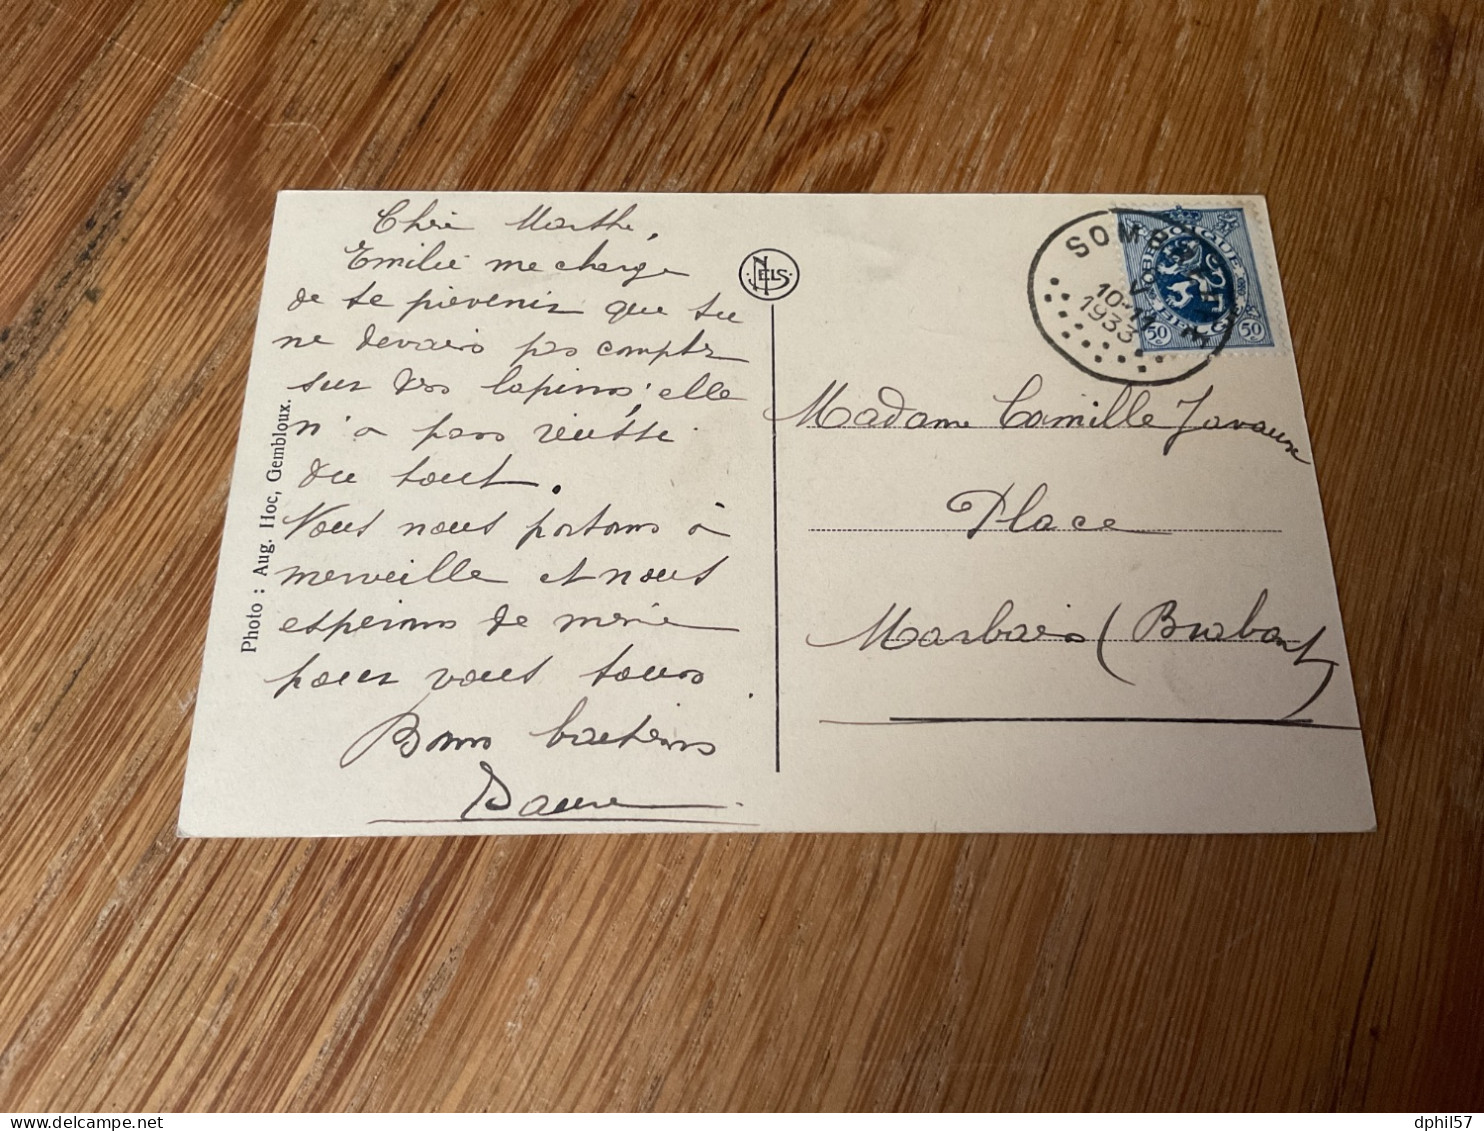 Photo : Aug. Hoc, Gembloux.
Chère Marthe,
Emilie me charge
de te prévenir que tu
ne devrais pas compter
sur des lapins, elle
n'a pas réussi
du tout.
Nous nous portons à
merveille et nous
espérons de même
pour vous tous.
Bons baisers
NELS
SOMBREFFE
10-11
1933
BELGIQUE
BELGIE
50 50
Madame Camille Javaux
Place
Marbais (Brabant)
dphil57